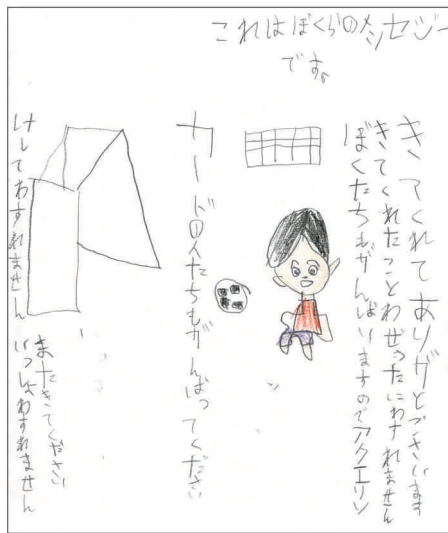 これはぼくらのメッセジー
です。
きてくれてありがとございます
きてくれたことわぜったにわすれません
ぼくたちもがんばりますのでアクエリン
カードの人たちもがんばってください
けしてわすれません
またきてください
いっしょわすれません